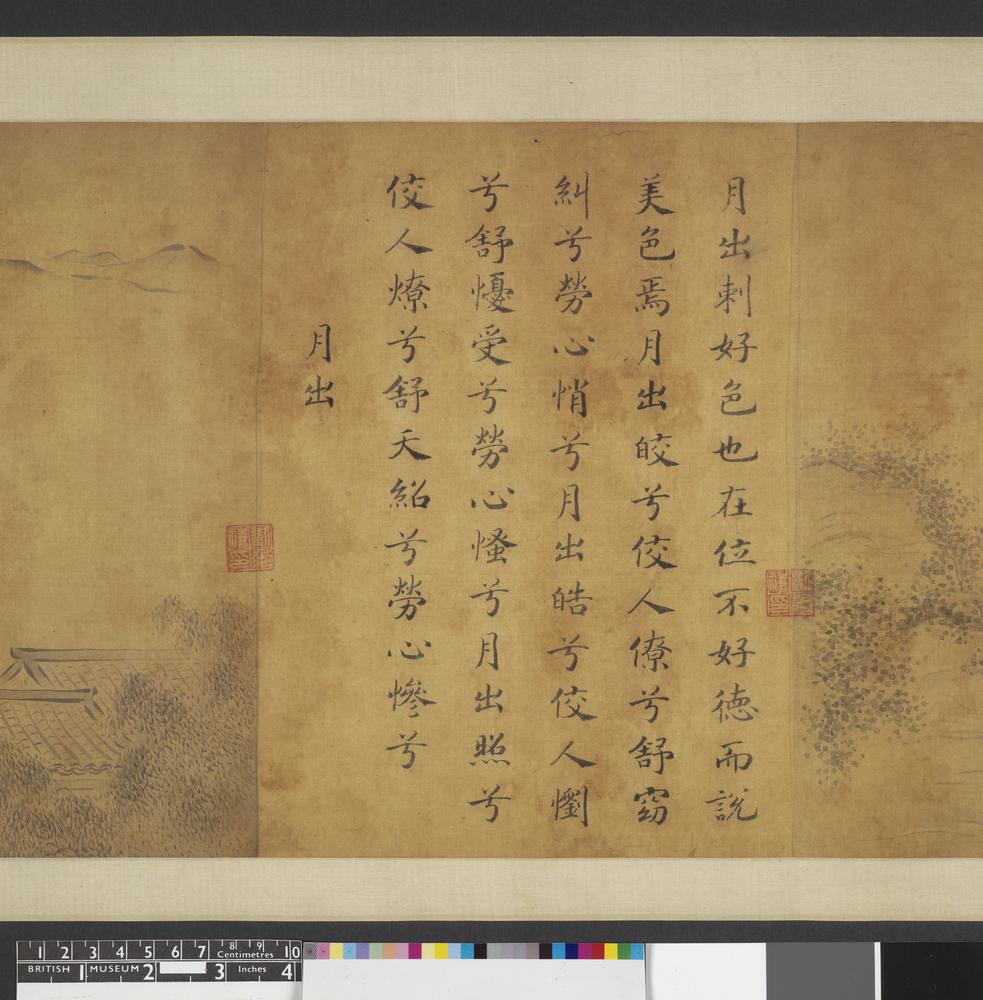 月出刺好色也在位不好德而説
美色焉月出皎兮佼人僚兮舒窈
糾兮勞心悄兮月出皓兮佼人懰
兮舒懮受兮勞心慅兮月出照兮
佼人燎兮舒夭紹兮勞心慘兮
月出
1 2 3 4 5 6 7 8 9 10
Centimetres
BRITISH MUSEUM
1 2 3 4
Inches